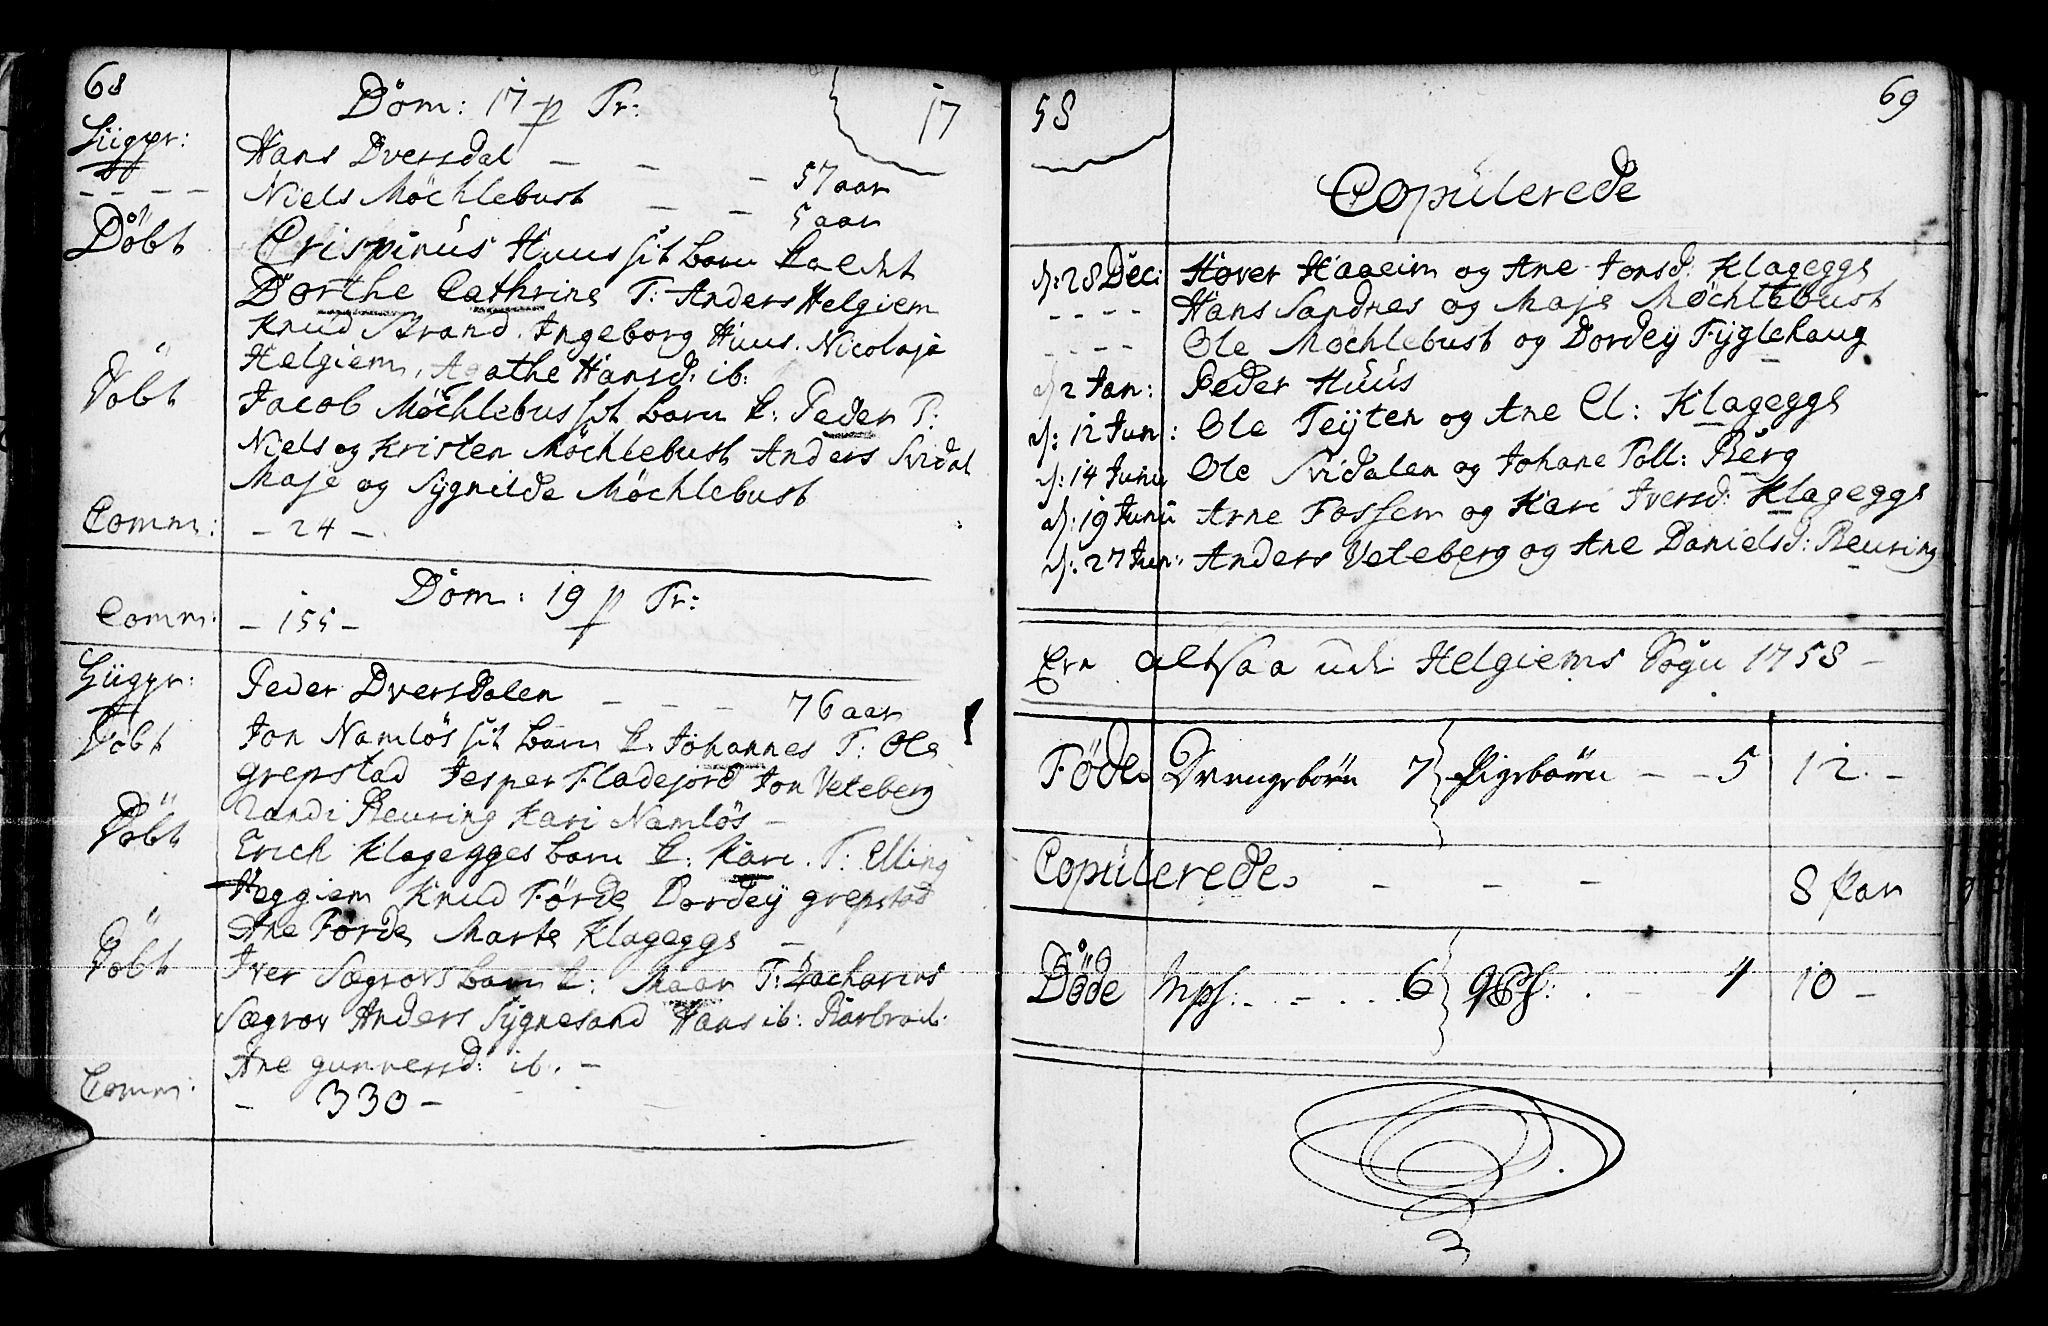 68
Dom: 17 p Tr:
17
Liigpr:
Hans Dversdal – – – 57 aar
– – – –
Niels Möchlebust – – 5 aar
Döbt
Crispinus Huus sit barn kaldt
Dorthe Cathrine T: Anders Helgiem
Knud Strand. Ingeborg Huus. Nicolaja
Helgiem, Agathe Hansd. ib:
Döbt
Jacob Möchlebus sit barn k: Peder T:
Niels og Kristen Möchlebust Anders Svidal
Maje og Sygnilde Möchlebust
Comm:
– 24 –
Dom: 19 p Tr:
Comm:
– 155 –
Liigpr:
Peder Dversdalen – – – 76 aar
Döbt
Jon Namlös sit barn k. Johannes T: Ole
grepstad Jesper Fladejord Jon Veteberg
Randi Reuring Kari Namlös –
Döbt
Erich Klagegges barn k: Kari. T: Elling
Heggiem Knud Förde Dordey grepstad
Ane Förde Marte Klageggs –
Döbt
Iver Sægrovs barn k: Maar T: Zacharias
Sægrov Anders Sygnesand Hans ib:
Ane gunnersd: ib. –
Comm:
– 330 –
58
69
Copulerede
d: 28 Dec: Hover Haaeim og Ane Jonsd: Klageggs
– – – – Hans Sandnes og Maje Möchlebust
– – – – Ole Möchlebust og Dordey Fyglehaug
d 2 Jan: Peder Huus
d: 12 Jun: Ole Teyten og Ane El: Klageggs
d: 14 Junii Ole Svidalen og Johane Poll: Berg
d: 19 Junii Arne Fossem og Kari Iversd: Klageggs
d: 27 Jun: Anders Veteberg og Ane Danielsd: Reuring
Ere altsaa udi Helgiems Sogn 1758 –
Föde Drengebörn 7 Pigebörn – – 5 12. –
Copulerede. – – – 8 Par
Döde Mps: – – . . 6 qPs: . – – 4 10 –